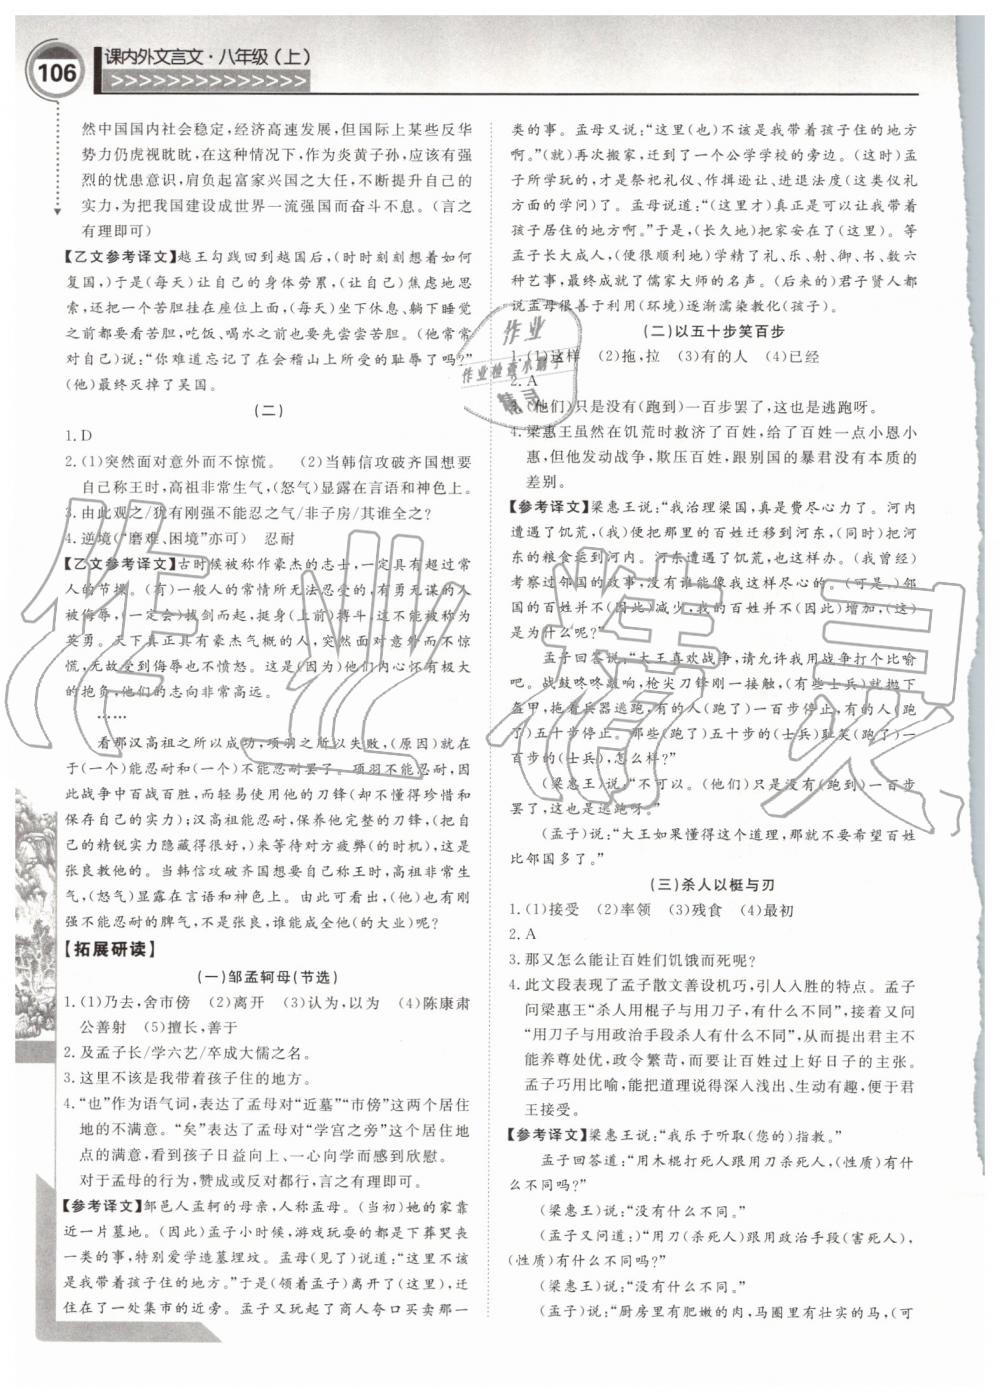 106
课内外文言文·八年级(上)
然中国国内社会稳定,经济高速发展,但国际上某些反华
势力仍虎视眈眈,在这种情况下,作为炎黄子孙,应该有强
烈的忧患意识,肩负起富家兴国之大任,不断提升自己的
实力,为把我国建设成世界一流强国而奋斗不息。(言之
有理即可)
【乙文参考译文】越王勾践回到越国后,(时时刻刻想着如何
复国,)于是(每天)让自己的身体劳累,(让自己)焦虑地思
索,(还)把一个苦胆挂在座位上面,(每天)坐下休息、躺下睡觉
之前都要看看苦胆,吃饭、喝水之前也要先尝尝苦胆。(他常常
对自己)说:“你难道忘记了在会稽山上所受的耻辱了吗?”
(他)最终灭掉了吴国。
(二)
1. D
2. (1)突然面对意外而不惊慌。 (2)当韩信攻破齐国想要
自己称王时,高祖非常生气,(怒气)显露在言语和神色上。
3. 由此观之/犹有刚强不能忍之气/非子房/其谁全之?
4. 逆境(“磨难、困境”亦可) 忍耐
【乙文参考译文】古时候被称作豪杰的志士,一定具有超过常
人的节操。(有)一般人的常情所无法忍受的,有勇无谋的人
被侮辱,一定会)拔剑而起,挺身(上前)搏斗,这不能够被称为
英勇。天下真正具有豪杰气概的人,突然面对意外而不惊
慌,无故受到侮辱也不愤怒。这是(因为)他们内心怀有极大
的抱负,他们的志向非常高远。
……
看那汉高祖之所以成功,项羽之所以失败,(原因)就在
于(一个)能忍耐和(一个)不能忍耐罢了。项羽不能忍耐,因
此战争中百战百胜,而轻易使用他的刀锋(却不懂得珍惜和
保存自己的实力);汉高祖能忍耐,保养他完整的刀锋,(把自
己的精锐实力隐藏得很好,)来等待对方疲弊(的时机),这是
张良教他的。当韩信攻破齐国想要自己称王时,高祖非常生
气,(怒气)显露在言语和神色上。由此可看出,(他)也有刚
强不能忍耐的脾气,不是张良,谁能成全他(的大业)呢?
【拓展研读】
(一)邹孟轲母(节选)
1. (1)乃去,舍市傍 (2)离开 (3)认为,以为 (4)陈康肃
公善射 (5)擅长,善于
2. 及孟子长/学六艺/卒成大儒之名。
3. 这里不该是我带着孩子住的地方。
4. “也”作为语气词,表达了孟母对“近墓”“市傍”这两个居住
地的不满意。“矣”表达了孟母对“学宫之旁”这个居住地
点的满意,看到孩子日益向上、一心向学而感到欣慰。
对于孟母的行为,赞成或赞许都行,言之有理即可。
【参考译文】邹邑人孟轲的母亲,人称孟母。(当初)她的家靠
近一片墓地。(因此)孟子小时候,游戏玩耍的都是下葬哭丧
一类的事,特别爱学造墓埋坟。孟母(见了)说道:“这里不该
是我带着孩子住的地方。”于是(领着孟子)离开了(这里),迁
住在了一处集市的近旁。孟子又玩起了商人夸口买卖那一
类的事。孟母又说:“这里(也)不该是我带着孩子住的地方
啊。”(就)再次搬家,迁到了一个公学学校的旁边。(这时)孟
子所学玩的,才是祭祀礼仪、作揖逊让、进退法度(这类仪礼
方面的学问)了。孟母说道:“(这里才)真正是可以带着我
孩子居住的地方啊!”于是,(长久地)把家安在了(这里)。等
孟子长大成人,(便很顺利地)学精了礼、乐、射、御、书、数六
种艺事,最终成就了儒家大师的名声。(后来的)君子贤人都
说孟母很善于利用(环境)逐渐濡染教化(孩子)。
(二)以五十步笑百步
1. (1)这样 (2)拖,拉 (3)有的人 (4)已经
2. A
3. (他们)只是没有(跑到)一百步罢了,这也是逃跑呀。
4. 梁惠王虽然在饥荒时救济了百姓,给了百姓一点小恩小
惠,但他发动战争,欺压百姓,跟别国的暴君没有本质的
差别。
【参考译文】梁惠王说:“我治理梁国,真是费尽心力了。河内
遭遇了饥荒,(我)便把那里的百姓迁移到河东,(同时)把河
东的粮食运到河内。河东遭遇了饥荒,也这样办。(我曾经)
考察过邻国的政事,没有谁能像我这样尽心的。(可是,)邻
国的百姓并不(因此)减少,我的百姓并不(因此)增加,(这)
是为什么呢?”
孟子回答说:“大王喜欢战争,请允许我用战争打个比喻
吧。战鼓咚咚敲响,枪尖刀锋刚一接触,(有些士兵)就抛下
盔甲,拖着兵器逃跑,有的人(跑了)一百步停止,有的人(跑
了)五十步停止。那些(跑了)五十步的(士兵)耻笑(跑了)一
百步的(士兵),怎么样?”
(梁惠王)说:“不可以。(他们)只是没有(跑到)一百步
罢了,这也是逃跑呀。”
(孟子)说:“大王如果懂得这个道理,那就不要希望百姓
比邻国多了。”
(三)杀人以梃与刃
1. (1)接受 (2)率领 (3)残食 (4)最初
2. A
3. 那又怎么能让百姓们饥饿而死呢?
4. 此文段表现了孟子散文善设机巧,引人入胜的特点。孟子
问梁惠王“杀人用棍子与用刀子,有什么不同”,接着又问
“用刀子与用政治手段杀人有什么不同”,从而提出君主不
能养尊处优,政令繁苛,而要让百姓过上好日子的主张。
孟子巧用比喻,能把道理说得深入浅出、生动有趣,便于君
王接受。
【参考译文】梁惠王说:“我乐于听取(您的)指教。”
孟子回答道:“用木棍打死人跟用刀杀死人,(性质)有什
么不同吗?”
(梁惠王)说:“没有什么不同。”
(孟子又问道):“用刀(杀死人)跟用政治手段(害死人),
(性质)有什么不同吗?”
(梁惠王)说:“没有什么不同。”
(孟子)说:“厨房里有肥嫩的肉,马圈里有壮实的马,(可
作业
作业检查小帮手
精灵
作业精灵